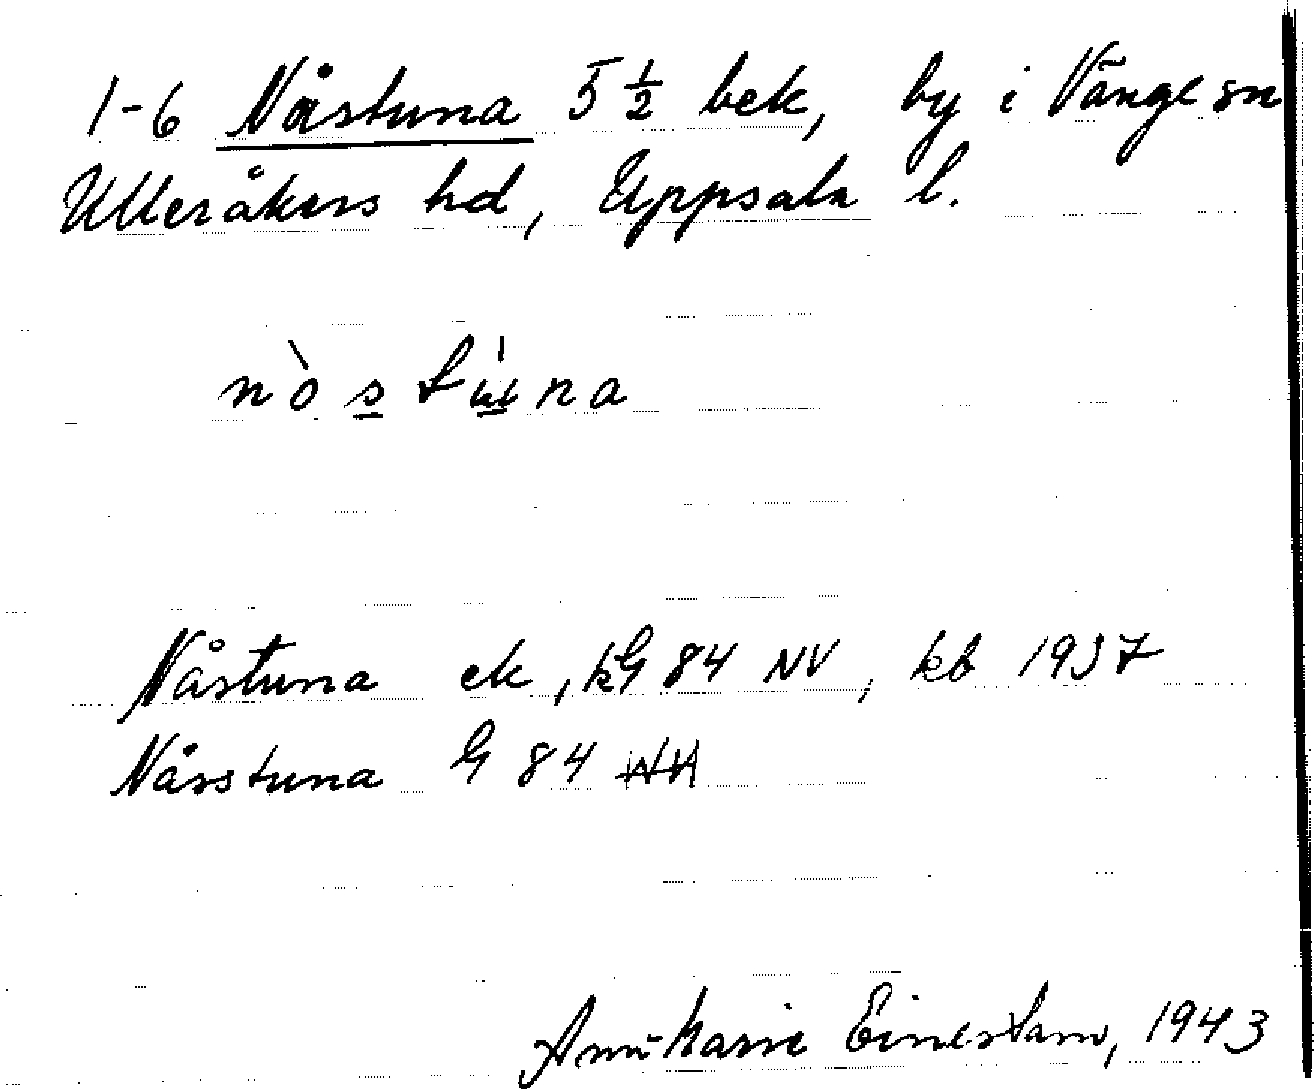 1-6 Nåstuna 5 ½ bek, by i Vänge sn
Ulleråkers hd, Uppsala l.
nòstu̲̍na
Nåstuna ek, kG 84 NV, kb 1937
Nårstuna G 84
Ann-Marie Einerstam, 1943